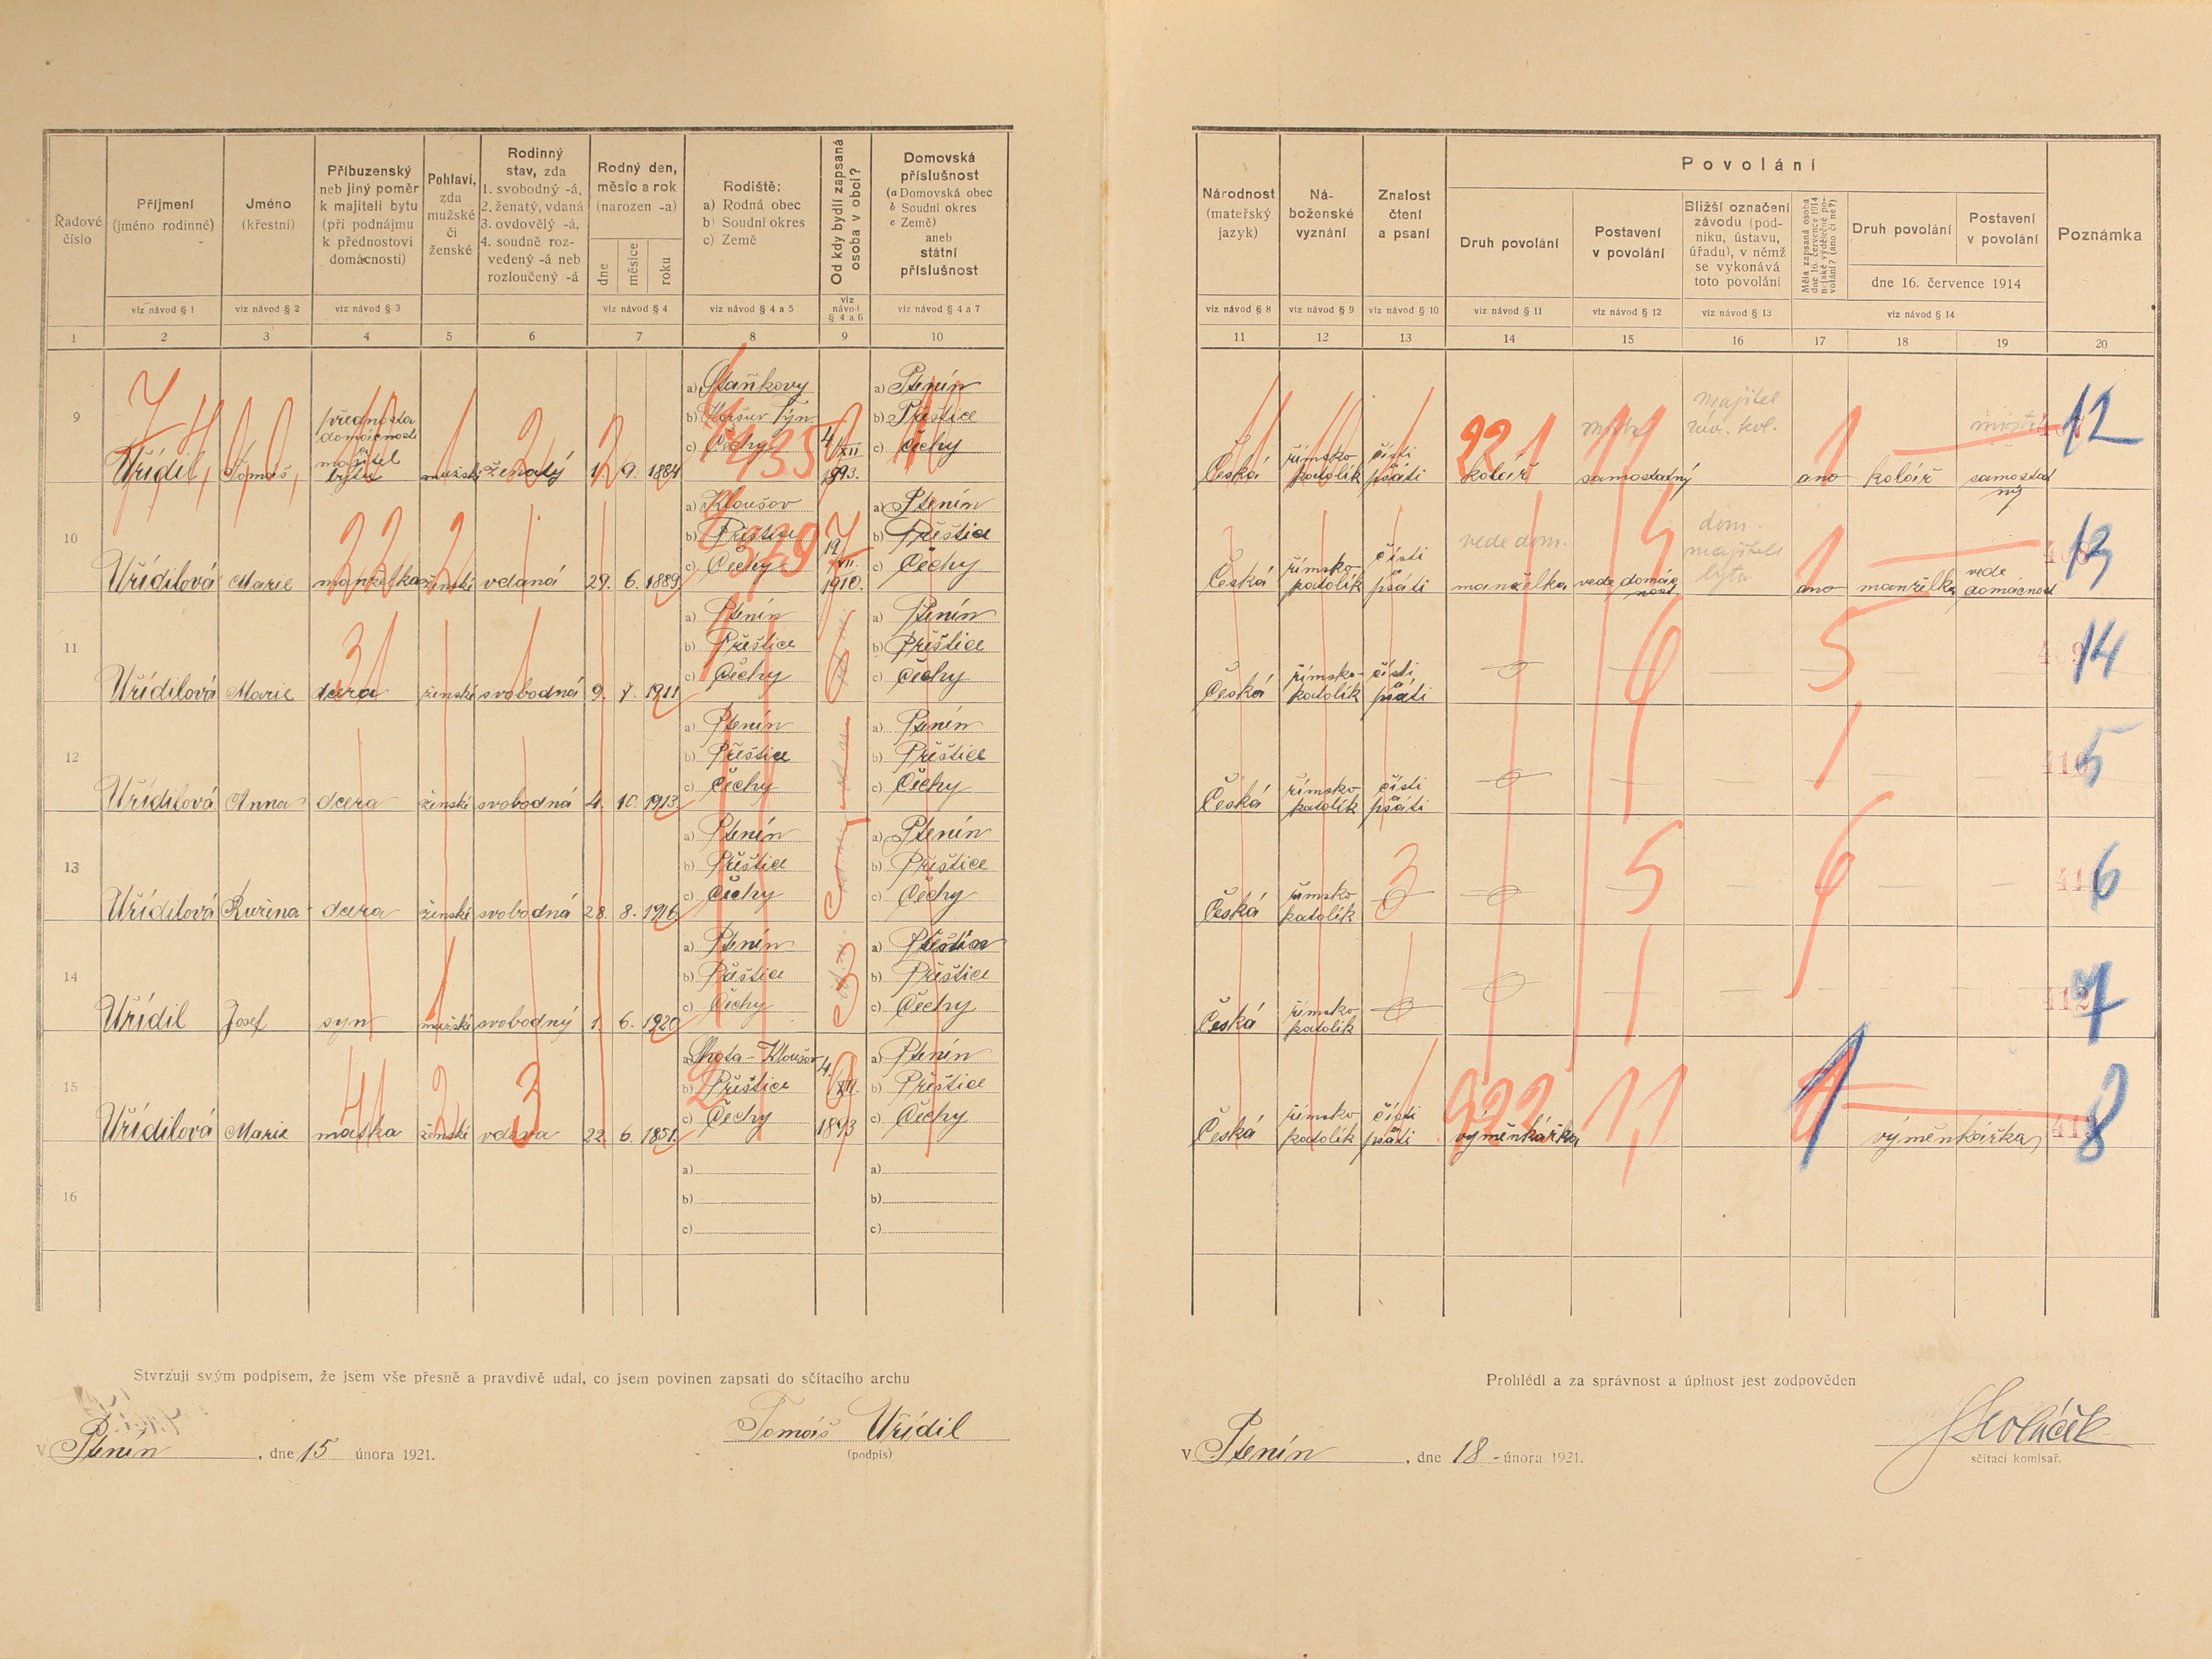 Řadové číslo
Příjmení (jméno rodinné)
viz návod § 1
Jméno (křestní)
viz návod § 2
Příbuzenský neb jiný poměr k majiteli bytu (při podnájmu k přednostovi domácnosti)
viz návod § 3
Pohlaví, zda mužské či ženské
Rodinný stav, zda 1. svobodný -á, 2. ženatý, vdaná 3. ovdovělý -á, 4. soudně rozvedený -á neb rozloučený -á
Rodný den, měsíc a rok (narozen -a)
dne měsíce roku
viz návod § 4
Rodiště: a) Rodná obec b) Soudní okres c) Země
viz návod § 4 a 5
Od kdy bydlí zapsaná osoba v obci?
viz návod § 4 a 6
Domovská příslušnost (a Domovská obec b Soudní okres c Země) aneb státní příslušnost
viz návod § 4 a 7
1 2 3 4 5 6 7 8 9 10
9 Uřídil, Tomáš, přednosta domácnosti a majitel bytu mužské ženatý 12. 9. 1884 a) Staňkovy b) Horšův Týn c) Čechy 4 XII 1893. a) Ptenín b) Přeštice c) Čechy
10 Uřídilová Marie manželka ženské vdaná 29. 6. 1889 a) Kloušov b) Přeštice c) Čechy 19 VII. 1910. a) Ptenín b) Přeštice c) Čechy
11 Uřídilová Marie dcera ženské svobodná 9. 7. 1911 a) Ptenín b) Přeštice c) Čechy a) Ptenín b) Přeštice c) Čechy
12 Uřídilová Anna dcera ženské svobodná 4. 10. 1913 a) Ptenín b) Přeštice c) Čechy a) Ptenín b) Přeštice c) Čechy
13 Uřídilová Ružena dcera ženské svobodná 28. 8. 1916 a) Ptenín b) Přeštice c) Čechy a) Ptenín b) Přeštice c) Čechy
14 Uřídil Josef syn mužské svobodný 1. 6. 1920 a) Ptenín b) Přeštice c) Čechy a) b) Přeštice c) Čechy
15 Uřídilová Marie matka ženské vdova 22. 6. 1851. a) Lhota - Kloušov b) Přeštice c) Čechy 4. XII. 1893 a) Ptenín b) Přeštice c) Čechy
16 a) b) c) a) b) c)
Stvrzuji svým podpisem, že jsem vše přesně a pravdivě udal, co jsem povinen zapsati do sčítacího archu
V Ptenín, dne 15 února 1921.
Tomáš Uřídil
(podpis)
Národnost (mateřský jazyk)
viz návod § 8
Náboženské vyznání
viz návod § 9
Znalost čtení a psaní
viz návod § 10
Povolání
Druh povolání
viz návod § 11
Postavení v povolání
viz návod § 12
Bližší označení závodu (podniku, ústavu, úřadu), v němž se vykonává toto povolání
viz návod § 13
Měla zapsaná osoba dne 16. července 1914 nějaké výdělečné povolání? (ano či ne?)
Druh povolání
Postavení v povolání
dne 16. července 1914
viz návod § 14
Poznámka
11 12 13 14 15 16 17 18 19 20
Česká římsko katolík čísti psáti 22 1 kolář samostatný majitel ano kolář samostatný 12
Česká římsko katolík čísti a psáti vede dom. manželka vede domácnost dom. majitele bytu ano manželka vede domácnost 13
Česká římsko-katolík čísti a psáti 14
Česká římsko katolík čísti a psáti 5
Česká římsko katolík 3 5 6 6
Česká římsko katolík 7
Česká římsko katolík čísti a psáti výměnkářka 1 výměnkářka 8
Prohlédl a za správnost a úplnost jest zodpověden
V Ptenín, dne 18 února 1921.
sčítací komisař.